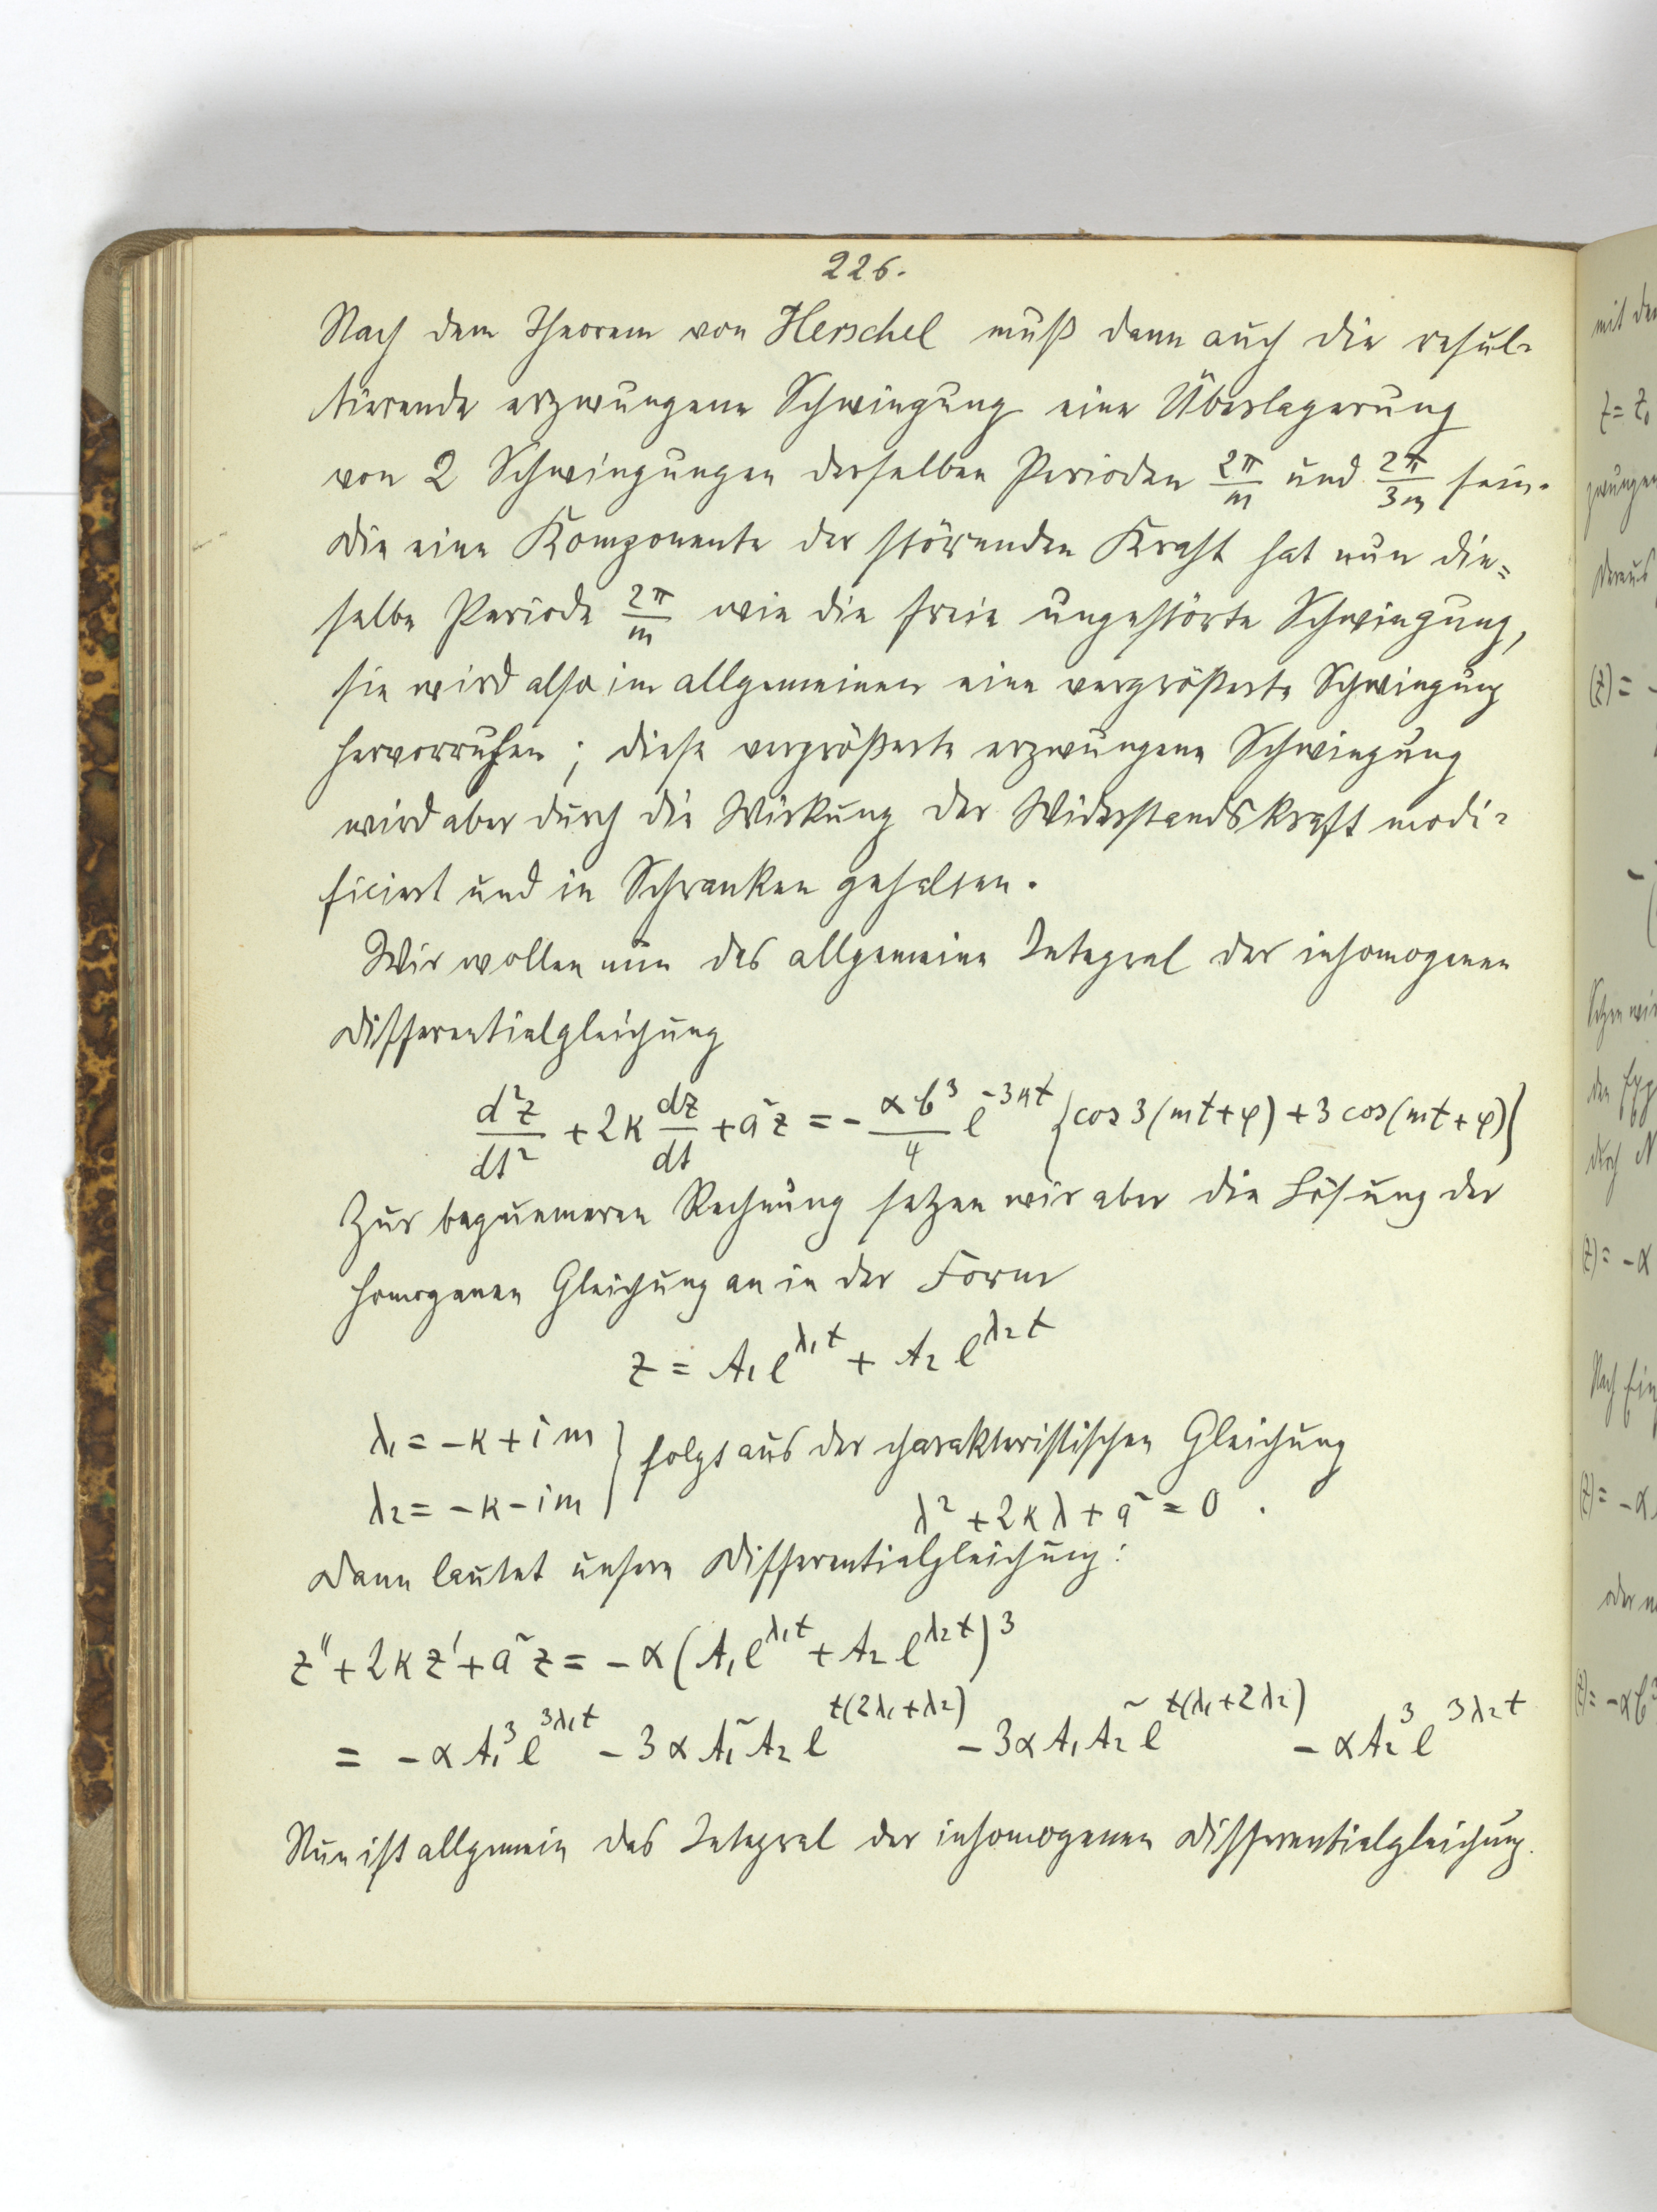 226.
Nach dem Theorem von Herschel muß dann auch die resul-
tierende erzwungene Schwingung eine Überlagerung
von 2 Schwingungen derselben Perioden 2π/m und 2π/3m sein.
Die eine Komponente der störenden Kraft hat nun die=
selbe Periode 2π/m wie die freie ungestörte Schwingung,
sie wird also im allgemeinen eine vergrößerte Schwingung
hervorrufen; diese vergrößerte erzwungene Schwingung
wird aber durch die Wirkung der Widerstandskraft modi-
ficiert und in Schranken gehalten.
Wir wollen nun das allgemeine Integral der inhomogenen
Differentialgleichung
d²z/dt² + 2κ dz/dt + a²z = - αb³/4 e^{-3κt} {cos 3(mt+φ) + 3 cos(mt+φ)}
Zur bequemeren Rechnung setzen wir aber die Lösung der
homogenen Gleichung an in der Form
z = A₁e^{λ₁t} + A₂e^{λ₂t}
λ₁ = -κ + im } folgt aus der charakteristischen Gleichung
λ₂ = -κ - im } λ² + 2κλ + a² = 0 .
Dann lautet unsere Differentialgleichung:
z'' + 2κz' + a²z = - α(A₁e^{λ₁t} + A₂e^{λ₂t})³
= - αA₁³e^{3λ₁t} - 3αA₁²A₂e^{t(2λ₁+λ₂)} - 3αA₁A₂²e^{t(λ₁+2λ₂)} - αA₂³e^{3λ₂t}
Nun ist allgemein das Integral der inhomogenen Differentialgleichung.